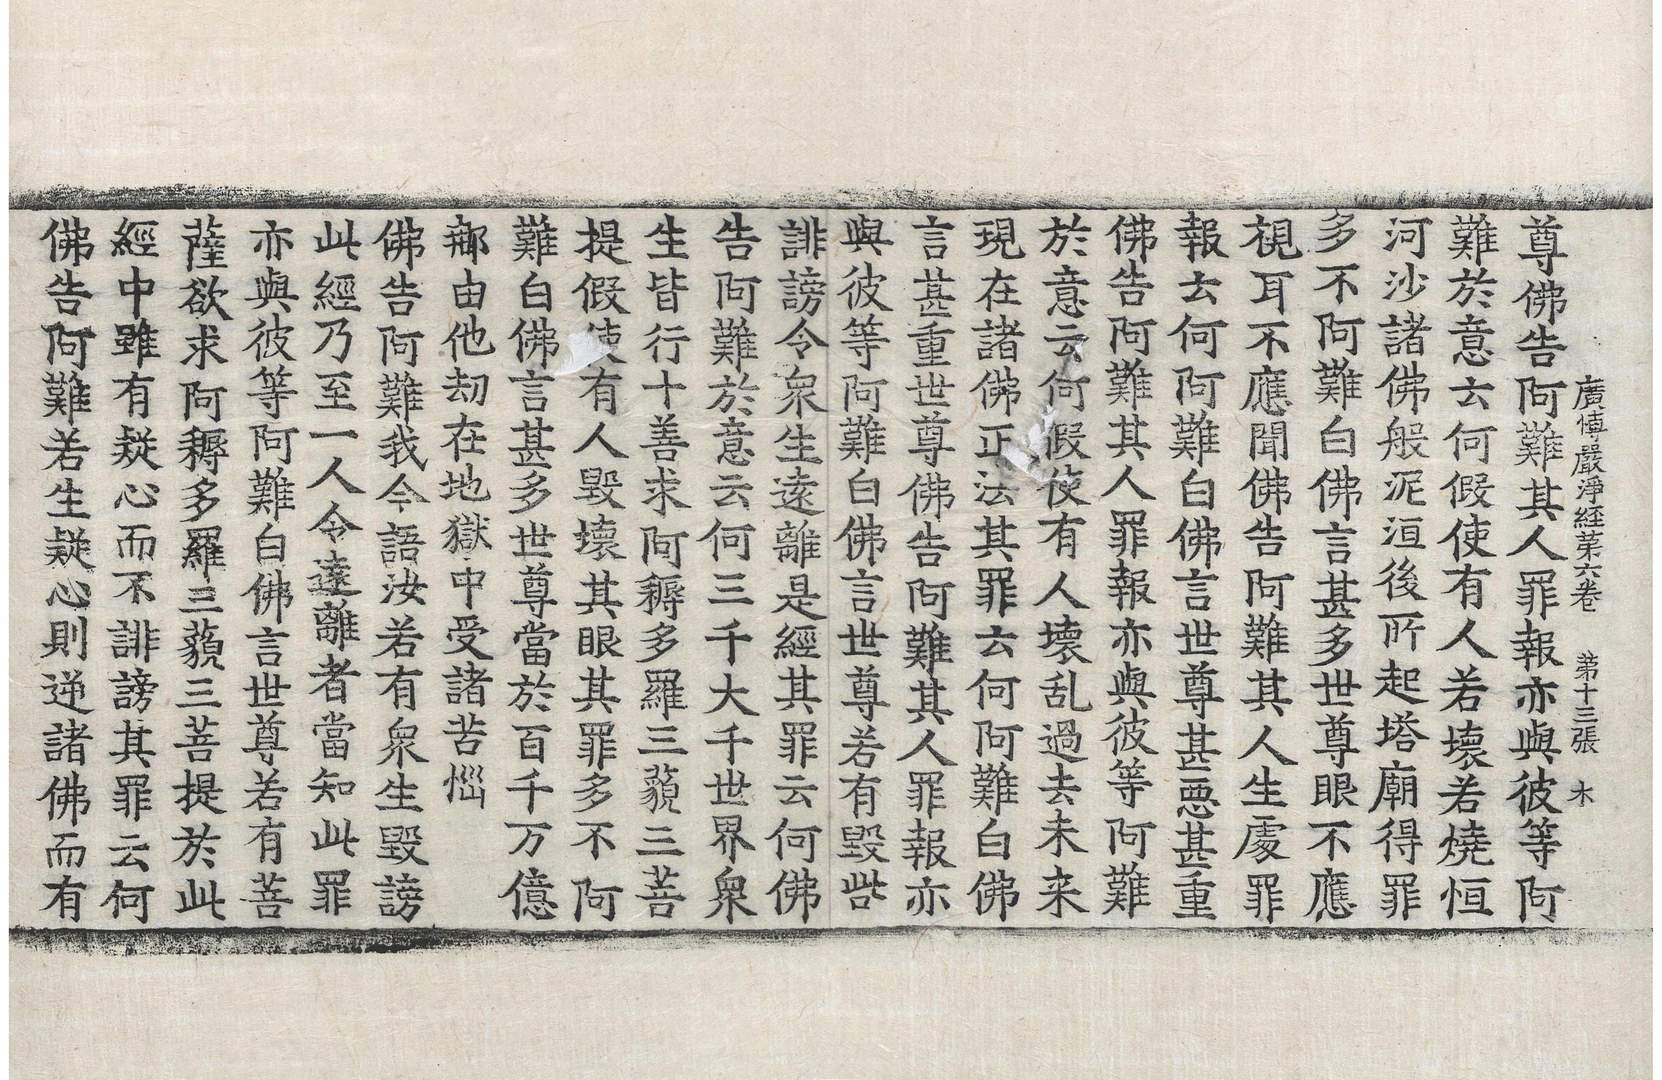 廣博嚴淨經第六卷　第十三張　木
尊佛告阿難其人罪報亦與彼等阿
難於意云何假使有人若壞若燒恒
河沙諸佛般泥洹後所起塔廟得罪
多不阿難白佛言甚多世尊眼不應
視耳不應聞佛告阿難其人生處罪
報云何阿難白佛言世尊甚惡甚重
佛告阿難其人罪報亦與彼等阿難
於意云何假使有人壞乱過去未来
現在諸佛正法其罪云何阿難白佛
言甚重世尊佛告阿難其人罪報亦
與彼等阿難白佛言世尊若有毀呰
誹謗令衆生遠離是經其罪云何佛
告阿難於意云何三千大千世界衆
生皆行十善求阿耨多羅三藐三菩
提假使有人毀壞其眼其罪多不阿
難白佛言甚多世尊當於百千万億
那由他劫在地獄中受諸苦惱
佛告阿難我今語汝若有衆生毀謗
此經乃至一人令遠離者當知此罪
亦與彼等阿難白佛言世尊若有菩
薩欲求阿耨多羅三藐三菩提於此
經中雖有疑心而不誹謗其罪云何
佛告阿難若生疑心則逆諸佛而有